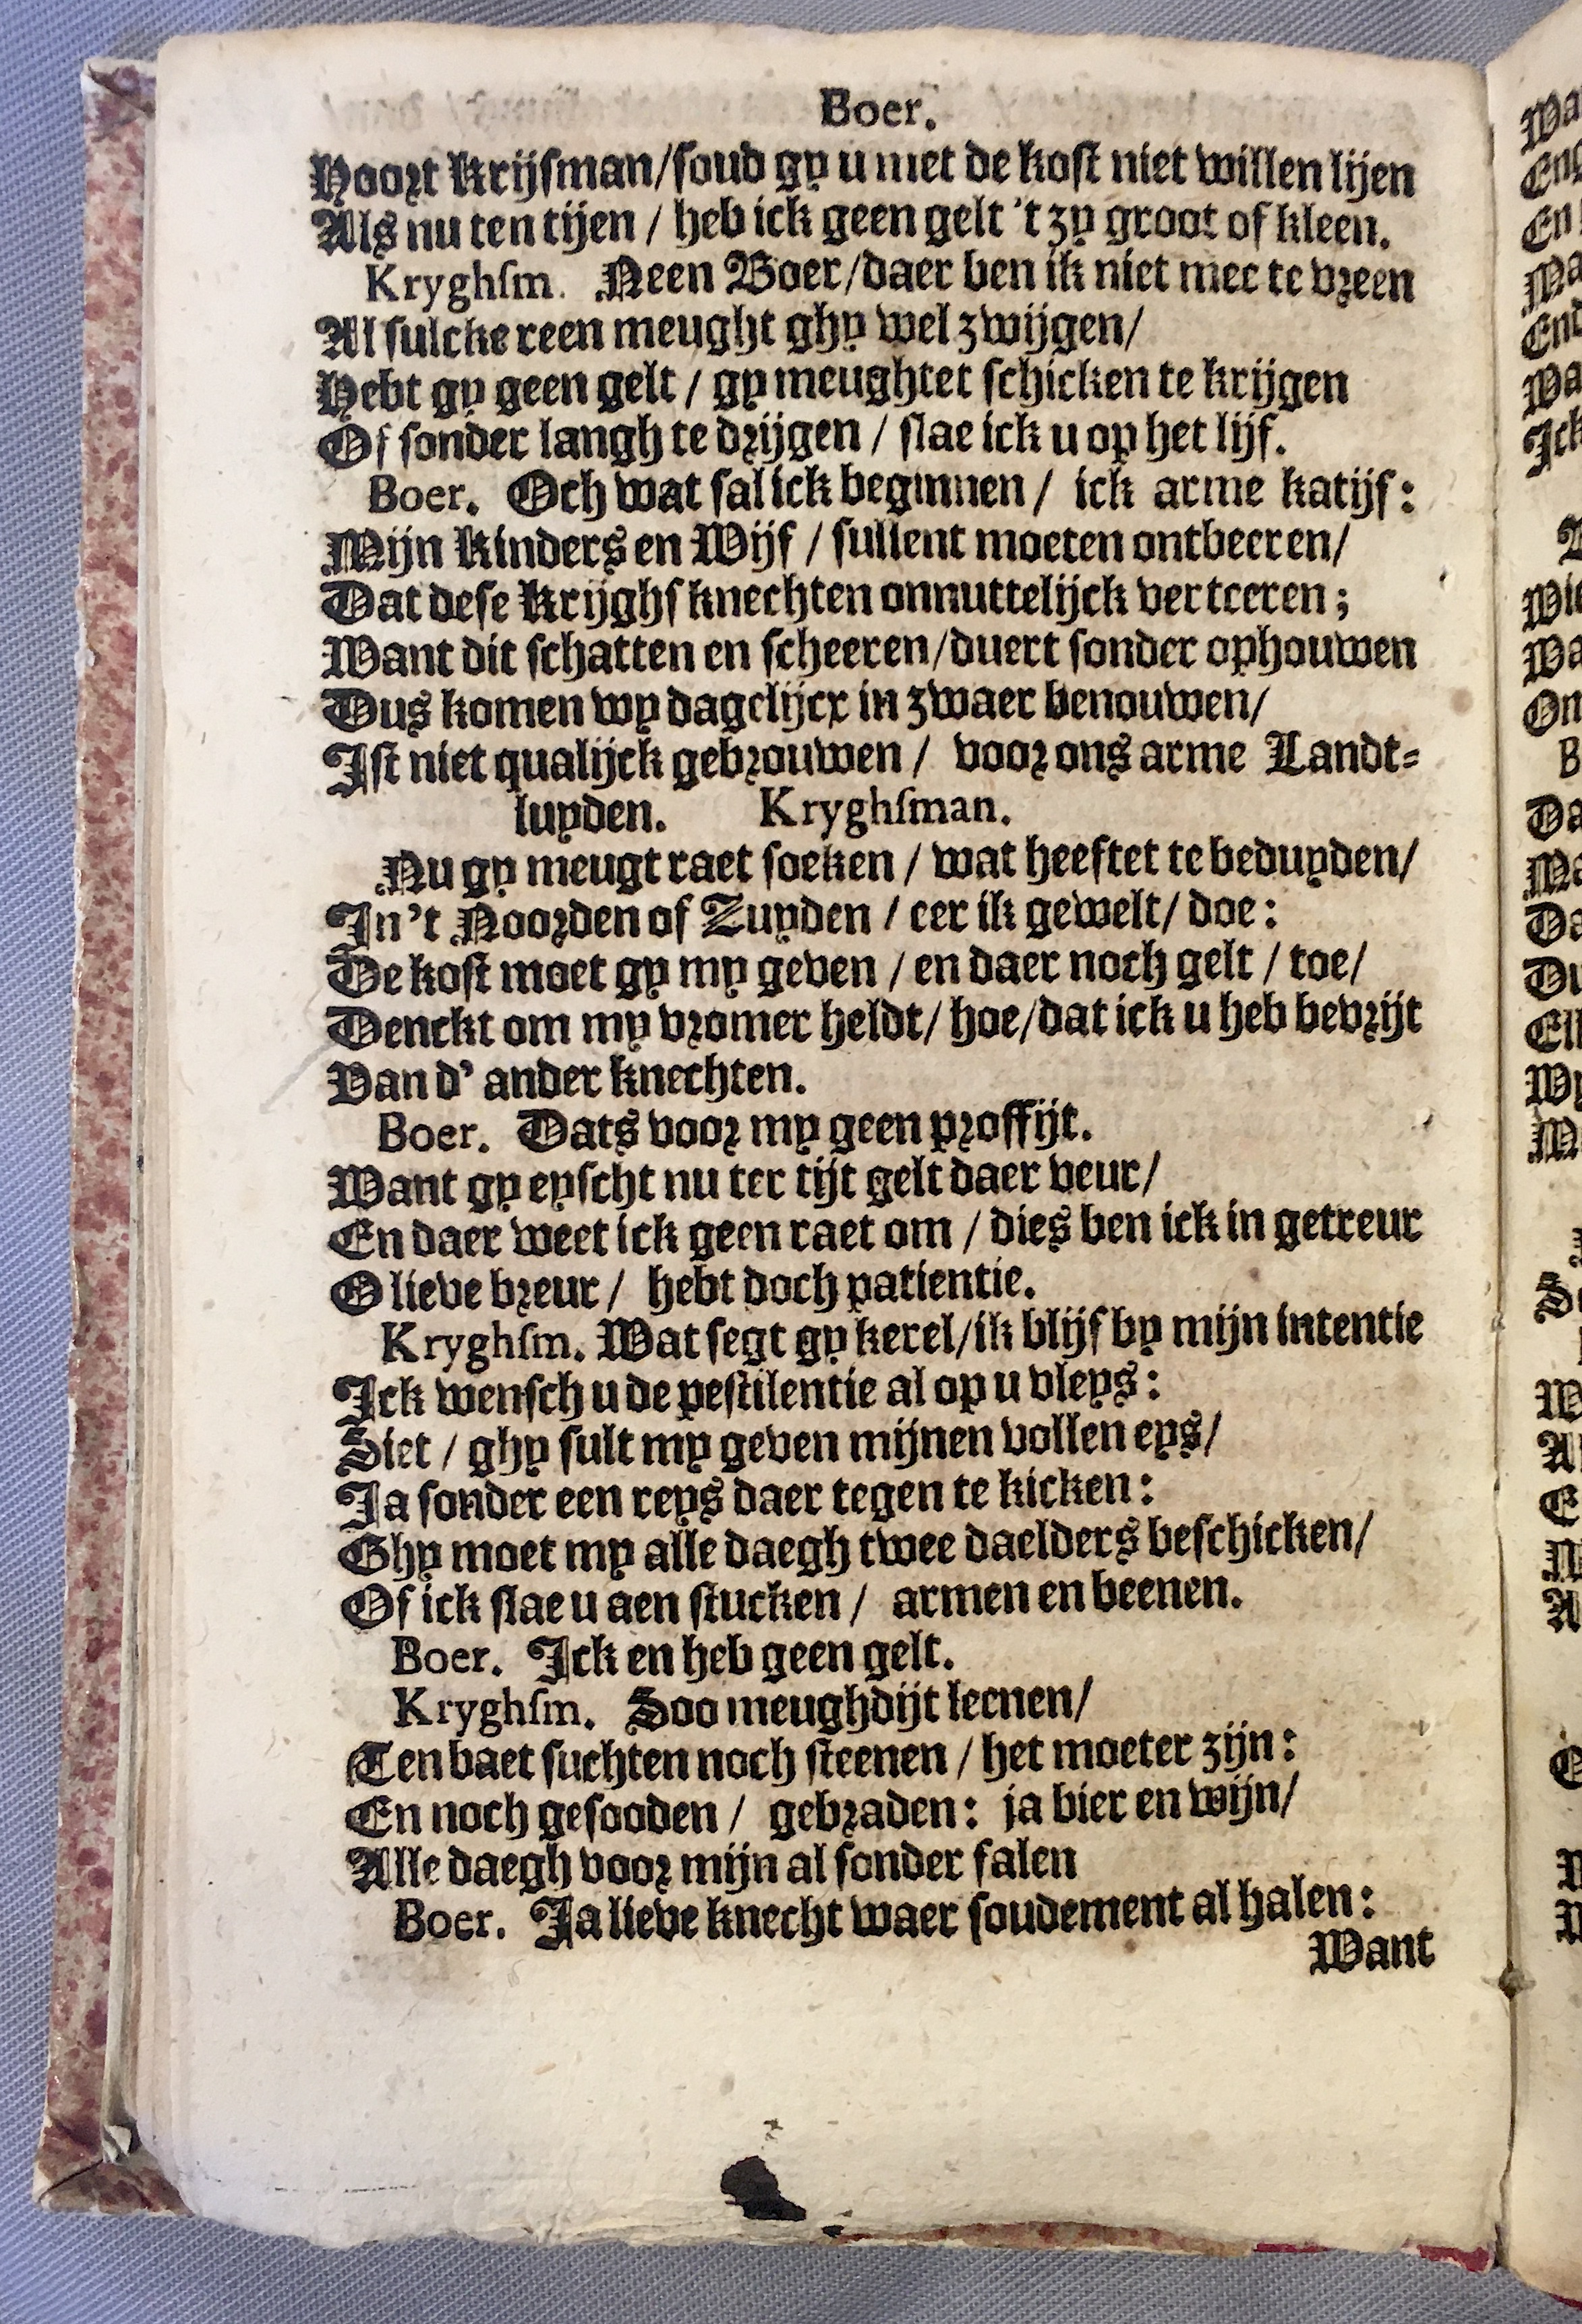 Boer.
Hoort Krijsman/soud gy u met de kost niet willen lijen
Als nu ten tijen / heb ick geen gelt 't zy groot of kleen.
Kryghsm. Neen Boer/daer ben ik niet mee te vreen
Al sulcke reen meught ghy wel zwijgen/
Hebt gy geen gelt / gy meughtet schicken te krijgen
Of sonder langh te drijgen / slae ick u op het lijf.
Boer. Och wat sal ick beginnen / ick arme katijf:
Mijn Kinders en Wijf / sullent moeten ontbeeren/
Dat dese Krijghs knechten onnuttelijck verteeren;
Want dit schatten en scheeren/duert sonder ophouwen
Dus komen wy dagelijcx in zwaer benouwen/
Ist niet qualijck gebrouwen / voor ons arme Landt-
luyden. Kryghsman.
Nu gy meugt raet soeken / wat heeftet te beduyden/
In't Noorden of Zuyden / eer ik gewelt/ doe:
De kost moet gy my geven / en daer noch gelt / toe/
Denckt om my vromer heldt/ hoe/dat ick u heb bevrijt
Van d' ander knechten.
Boer. Dats voor my geen proffijt.
Want gy eyscht nu ter tijt gelt daer veur/
En daer weet ick geen raet om / dies ben ick in getreur
O lieve breur / hebt doch patientie.
Kryghsm. Wat segt gy kerel/ik blijf by mijn intentie
Ick wensch u de pestilentie al op u vleys:
Siet / ghy sult my geven mijnen vollen eys/
Ja sonder een reys daer tegen te kicken:
Ghy moet my alle daegh twee daelders beschicken/
Of ick slae u aen stucken / armen en beenen.
Boer. Ick en heb geen gelt.
Kryghsm. Soo meughdijt leenen/
Ten baet suchten noch steenen / het moeter zijn:
En noch gesooden / gebraden: ja bier en wijn/
Alle daegh voor mijn al sonder falen
Boer. Ja lieve knecht waer soudement al halen:
Want